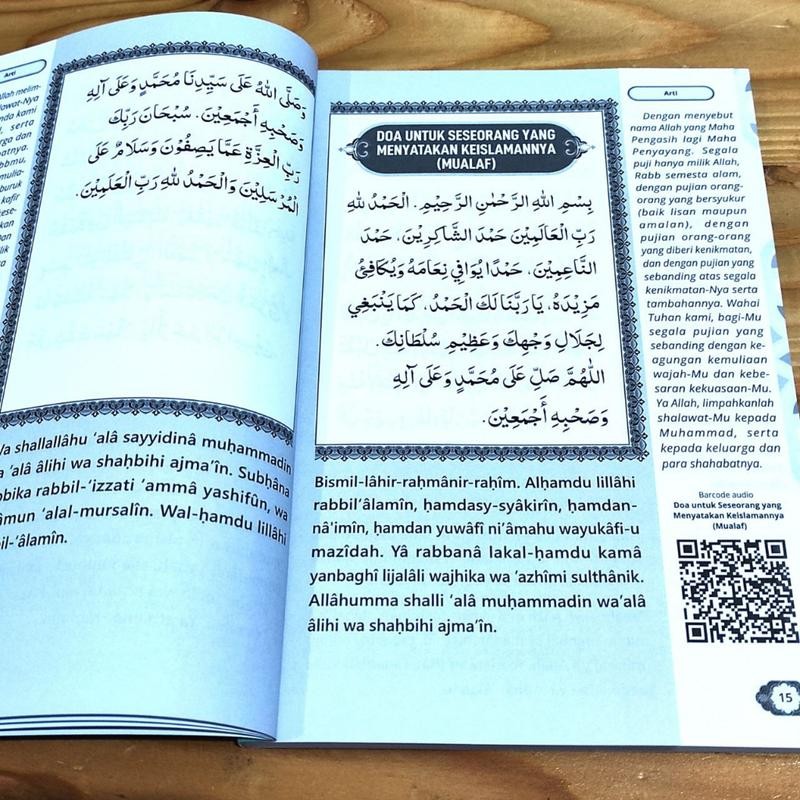 Arti
Allah melim-
lawat-Nya
nda kami
, serta
rga dan
batnya.
bbmu,
mulia-
buruk
kafir
kese-
kan
dan
lik
ta
وَصَلَّى اللهُ عَلَى سَيِّدِنَا مُحَمَّدٍ وَعَلَى آلِهِ
وَصَحْبِهِ أَجْمَعِيْنَ. سُبْحَانَ رَبِّكَ
رَبِّ الْعِزَّةِ عَمَّا يَصِفُوْنَ وَسَلَامٌ عَلَى
الْمُرْسَلِيْنَ وَالْحَمْدُ للهِ رَبِّ الْعَالَمِيْنَ.
Wa shallallâhu ‘alâ sayyidinâ muḥammadin
wa ‘alâ âlihi wa shaḥbihi ajma‘în. Subḥâna
rabbika rabbil-‘izzati ‘ammâ yashifûn, wa
âmun ‘alal-mursalîn. Wal-ḥamdu lillâhi
bil-‘âlamîn.
DOA UNTUK SESEORANG YANG
MENYATAKAN KEISLAMANNYA
(MUALAF)
بِسْمِ اللهِ الرَّحْمٰنِ الرَّحِيْمِ. الْحَمْدُ للهِ
رَبِّ الْعَالَمِيْنَ حَمْدَ الشَّاكِرِيْنَ، حَمْدَ
النَّاعِمِيْنَ، حَمْدًا يُوَافِي نِعَامَهُ وَيُكَافِئُ
مَزِيْدَهُ، يَا رَبَّنَا لَكَ الْحَمْدُ، كَمَا يَنْبَغِي
لِجَلَالِ وَجْهِكَ وَعَظِيْمِ سُلْطَانِكَ.
اَللّٰهُمَّ صَلِّ عَلَى مُحَمَّدٍ وَعَلَى آلِهِ
وَصَحْبِهِ أَجْمَعِيْنَ.
Bismil-lâhir-raḥmânir-raḥîm. Alḥamdu lillâhi
rabbil‘âlamîn, ḥamdasy-syâkirîn, ḥamdan-
nâ‘imîn, ḥamdan yuwâfî ni‘âmahu wayukâfi-u
mazîdah. Yâ rabbanâ lakal-ḥamdu kamâ
yanbaghî lijalâli wajhika wa ‘azhîmi sulthânik.
Allâhumma shalli ‘alâ muḥammadin wa‘alâ
âlihi wa shaḥbihi ajma‘în.
Arti
Dengan menyebut
nama Allah yang Maha
Pengasih lagi Maha
Penyayang. Segala
puji hanya milik Allah,
Rabb semesta alam,
dengan pujian orang-
orang yang bersyukur
(baik lisan maupun
amalan), dengan
pujian orang-orang
yang diberi kenikmatan,
dan dengan pujian yang
sebanding atas segala
kenikmatan-Nya serta
tambahannya. Wahai
Tuhan kami, bagi-Mu
segala pujian yang
sebanding dengan ke-
agungan kemuliaan
wajah-Mu dan kebe-
saran kekuasaan-Mu.
Ya Allah, limpahkanlah
shalawat-Mu kepada
Muhammad, serta
kepada keluarga dan
para shahabatnya.
Barcode audio
Doa untuk Seseorang yang
Menyatakan Keislamannya
(Mualaf)
15